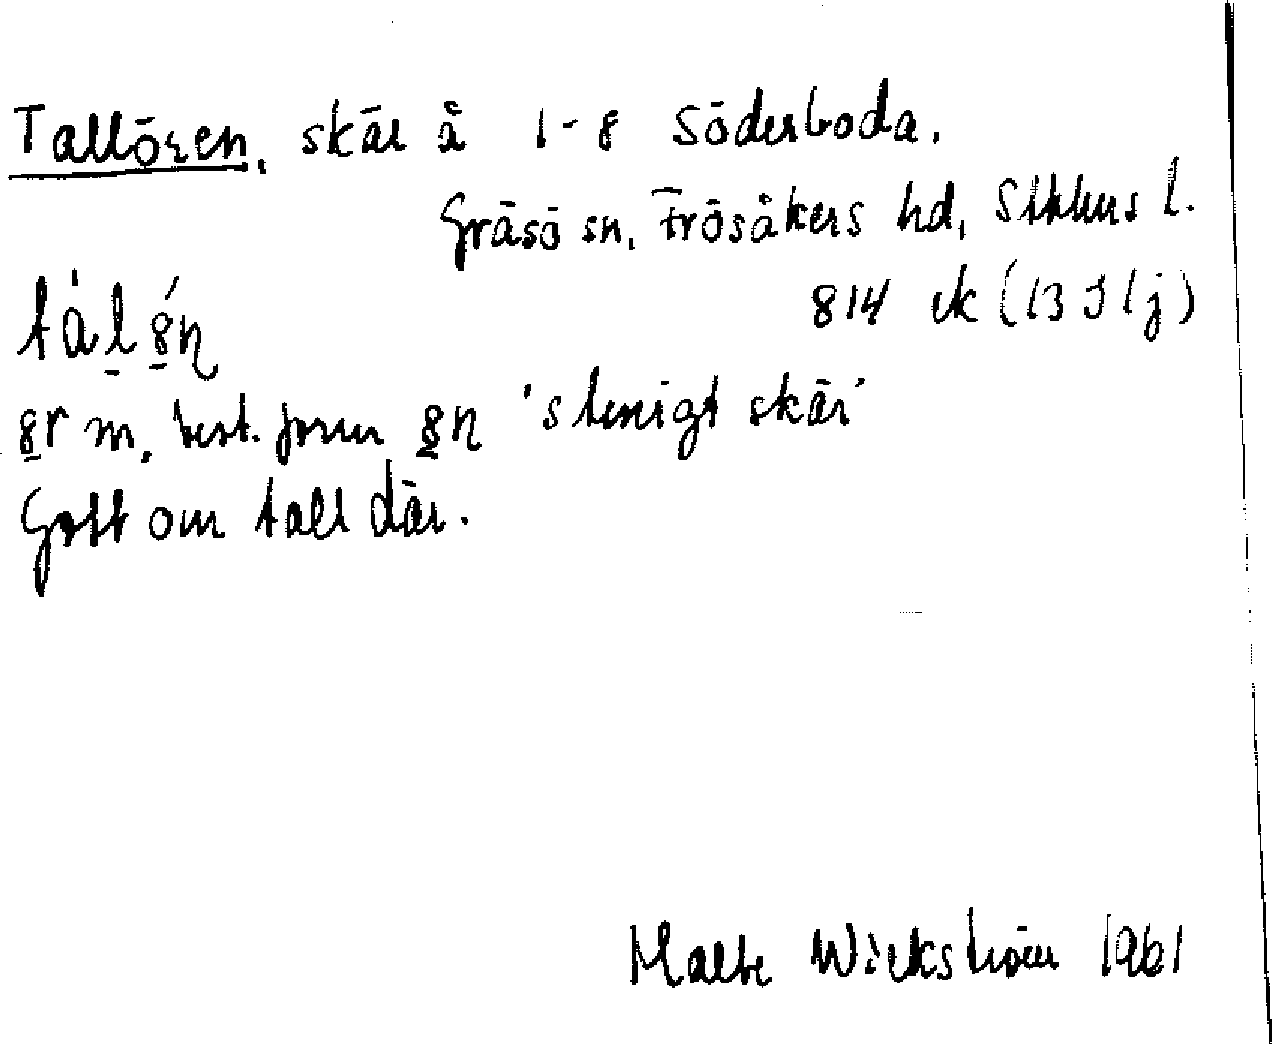 Tallören, skär å 1-8 Söderboda.
Gräsö sn, Frösåkers hd, Sthlms l.
814 ek (13 I 1j)
tàl 8́n
8r m, best. form 8n 'stenigt skär'
Gott om tall där.
Malte Wickström 1961